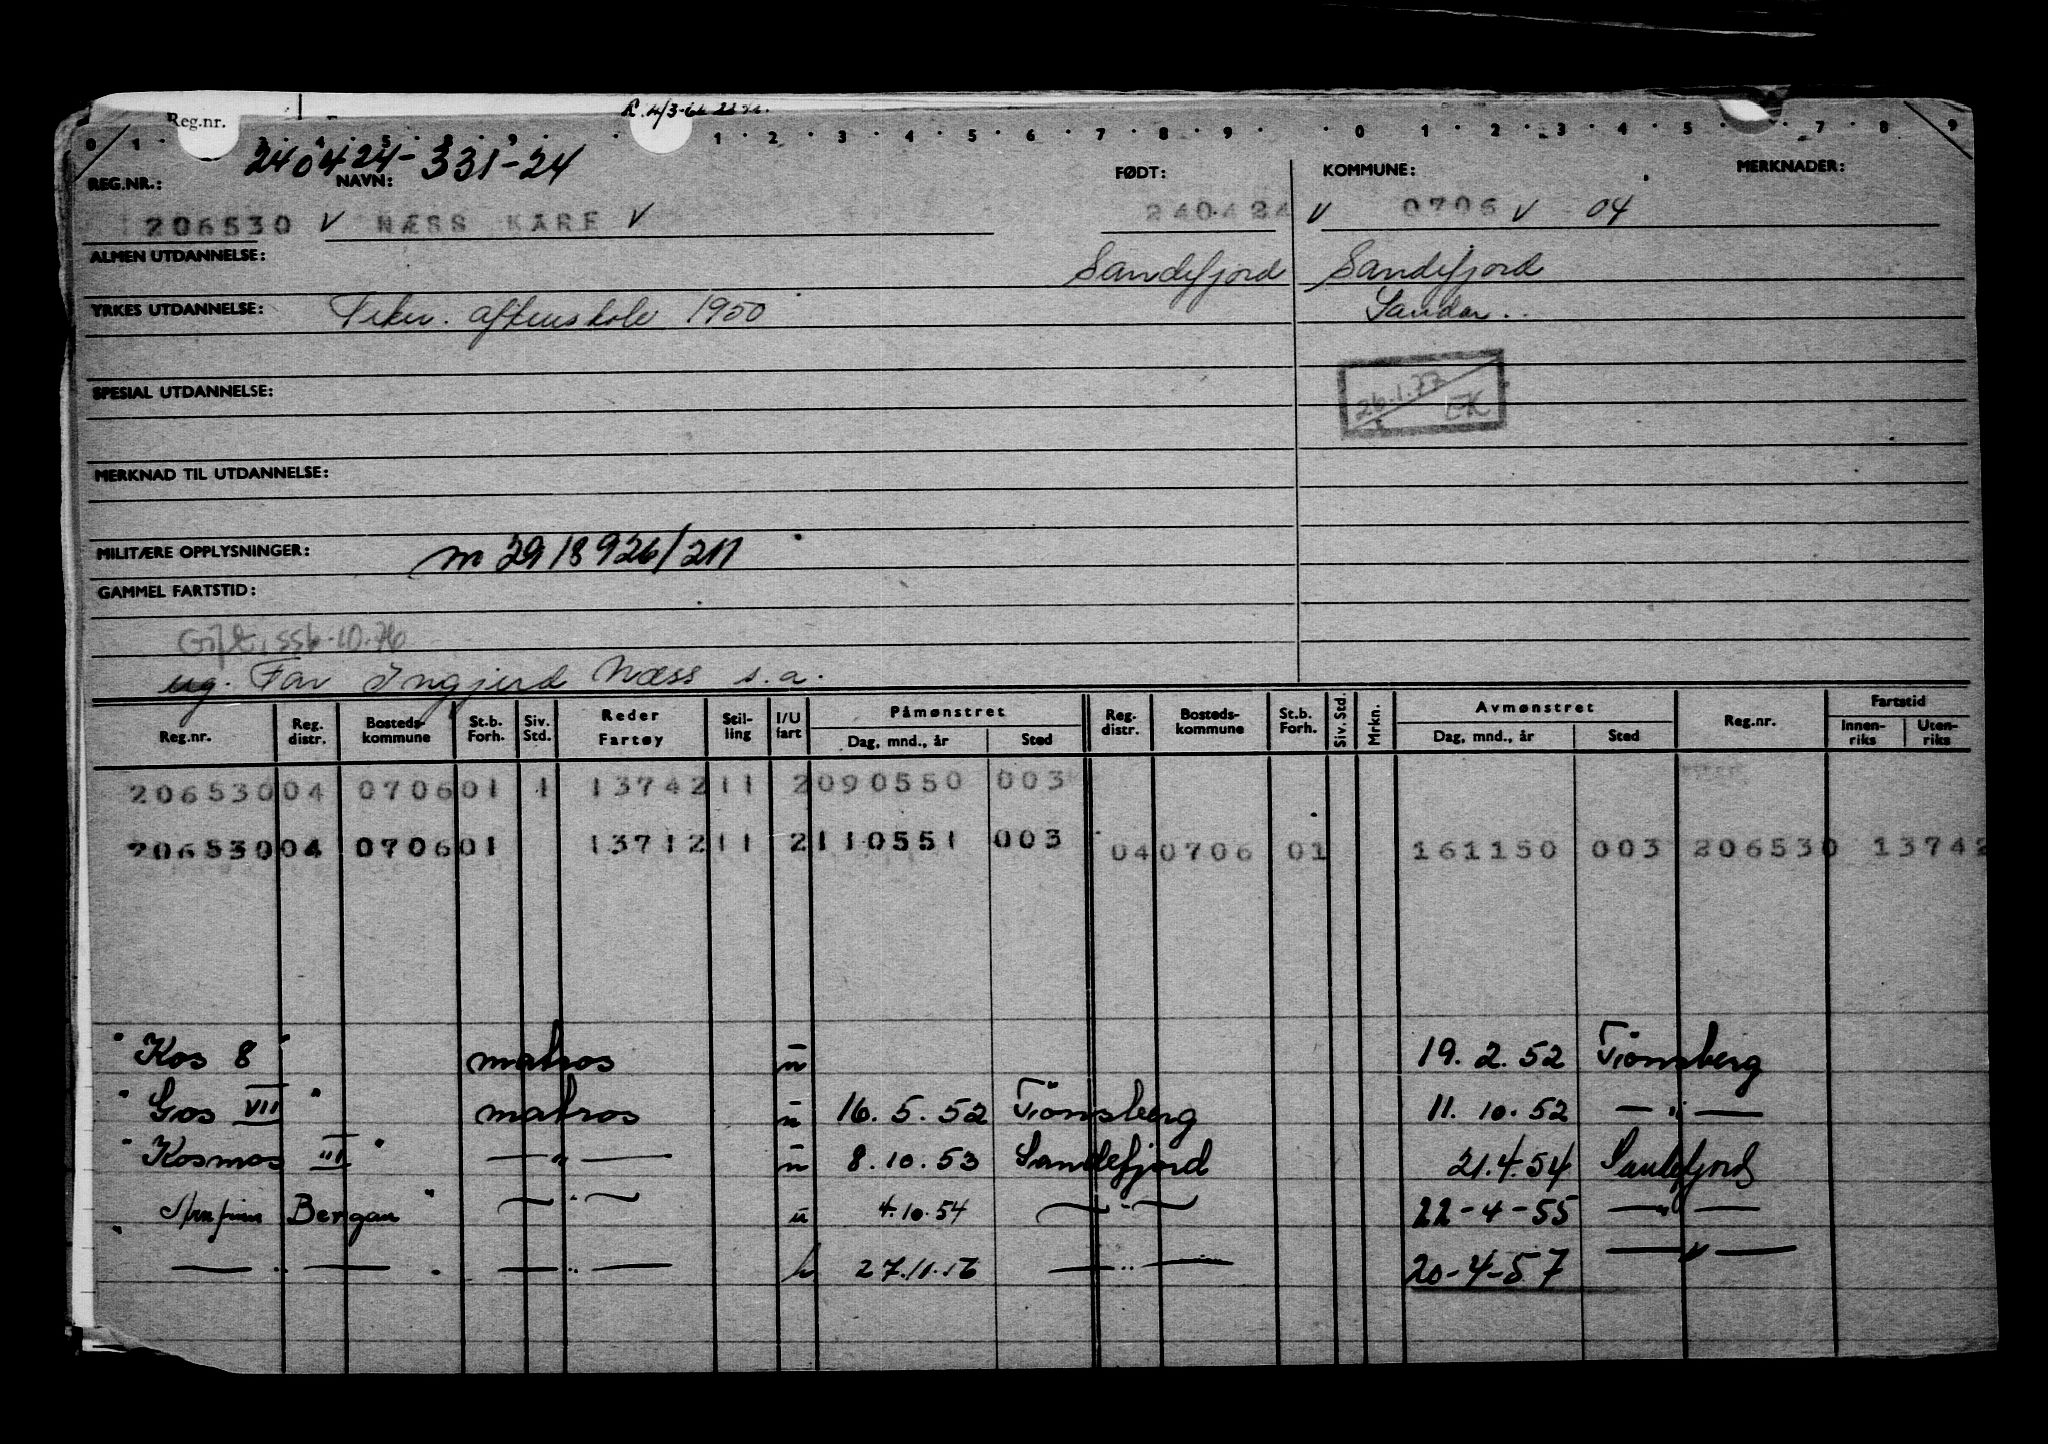 R. 4/3-66
Reg.nr.
0 1 . . . . . . 9 . 1 2 . 3 . 4 . 5 . 6 . 7 . 8 . 9 . . 0 . 1 . 2 . 3 . 4 . 5 . 7 . 8 . 9
240424-331-24
REG.NR.: NAVN: FØDT: KOMMUNE: MERKNADER:
206530 V NÆSS KARE V 240424 V 0706 V 04
ALMEN UTDANNELSE: Sandefjord Sandefjord
YRKES UTDANNELSE: Tekn. aftenskole 1950 Sandar..
26.1.77 EK
SPESIAL UTDANNELSE:
MERKNAD TIL UTDANNELSE:
MILITÆRE OPPLYSNINGER: m 2918926/211
GAMMEL FARTSTID:
Gift, ssb.10.76
ug. Far Ingjerd Næss s.a.
Reg.nr. Reg. distr. Bosteds-kommune St.b. Forh. Siv. Std. Reder Fartøy Stil-ling I/U fart Påmønstret Dag, mnd., år Sted Reg. distr. Bosteds-kommune St.b. Forh. Siv. Std. Mrkn. Avmønstret Dag, mnd., år Sted Reg.nr. Fartstid Innen-riks Uten-riks
206530 04 0706 01 1 13742 11 2 090550 003
206530 04 0706 01 13712 11 2 110551 003 04 0706 01 161150 003 206530 13742
"Kos 8" matros u 19. 2. 52 Tönsberg
"Gos VII" matros u 16. 5. 52 Tönsberg 11. 10. 52 — " —
"Kosmos III" — " — u 8. 10. 53 Sandefjord 21.4.54 Sandefjord
Bergan" — " — u 4.10.54 — " — 22-4-55 — " —
" — " — " — " — 27.11.16 — " — 20-4-57 — " —